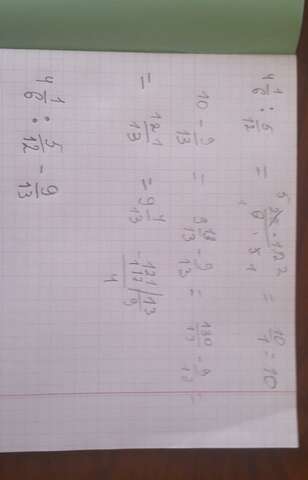 4 1/6 : 5/12 = 25 · 12 / 6 · 5 = 10/1 = 10
10 - 9/13 = 9 13/13 - 9/13 = 130/13 - 9/13 =
= 121/13 = 9 4/13
121 | 13
117 | 9
4
4 1/6 : 5/12 - 9/13